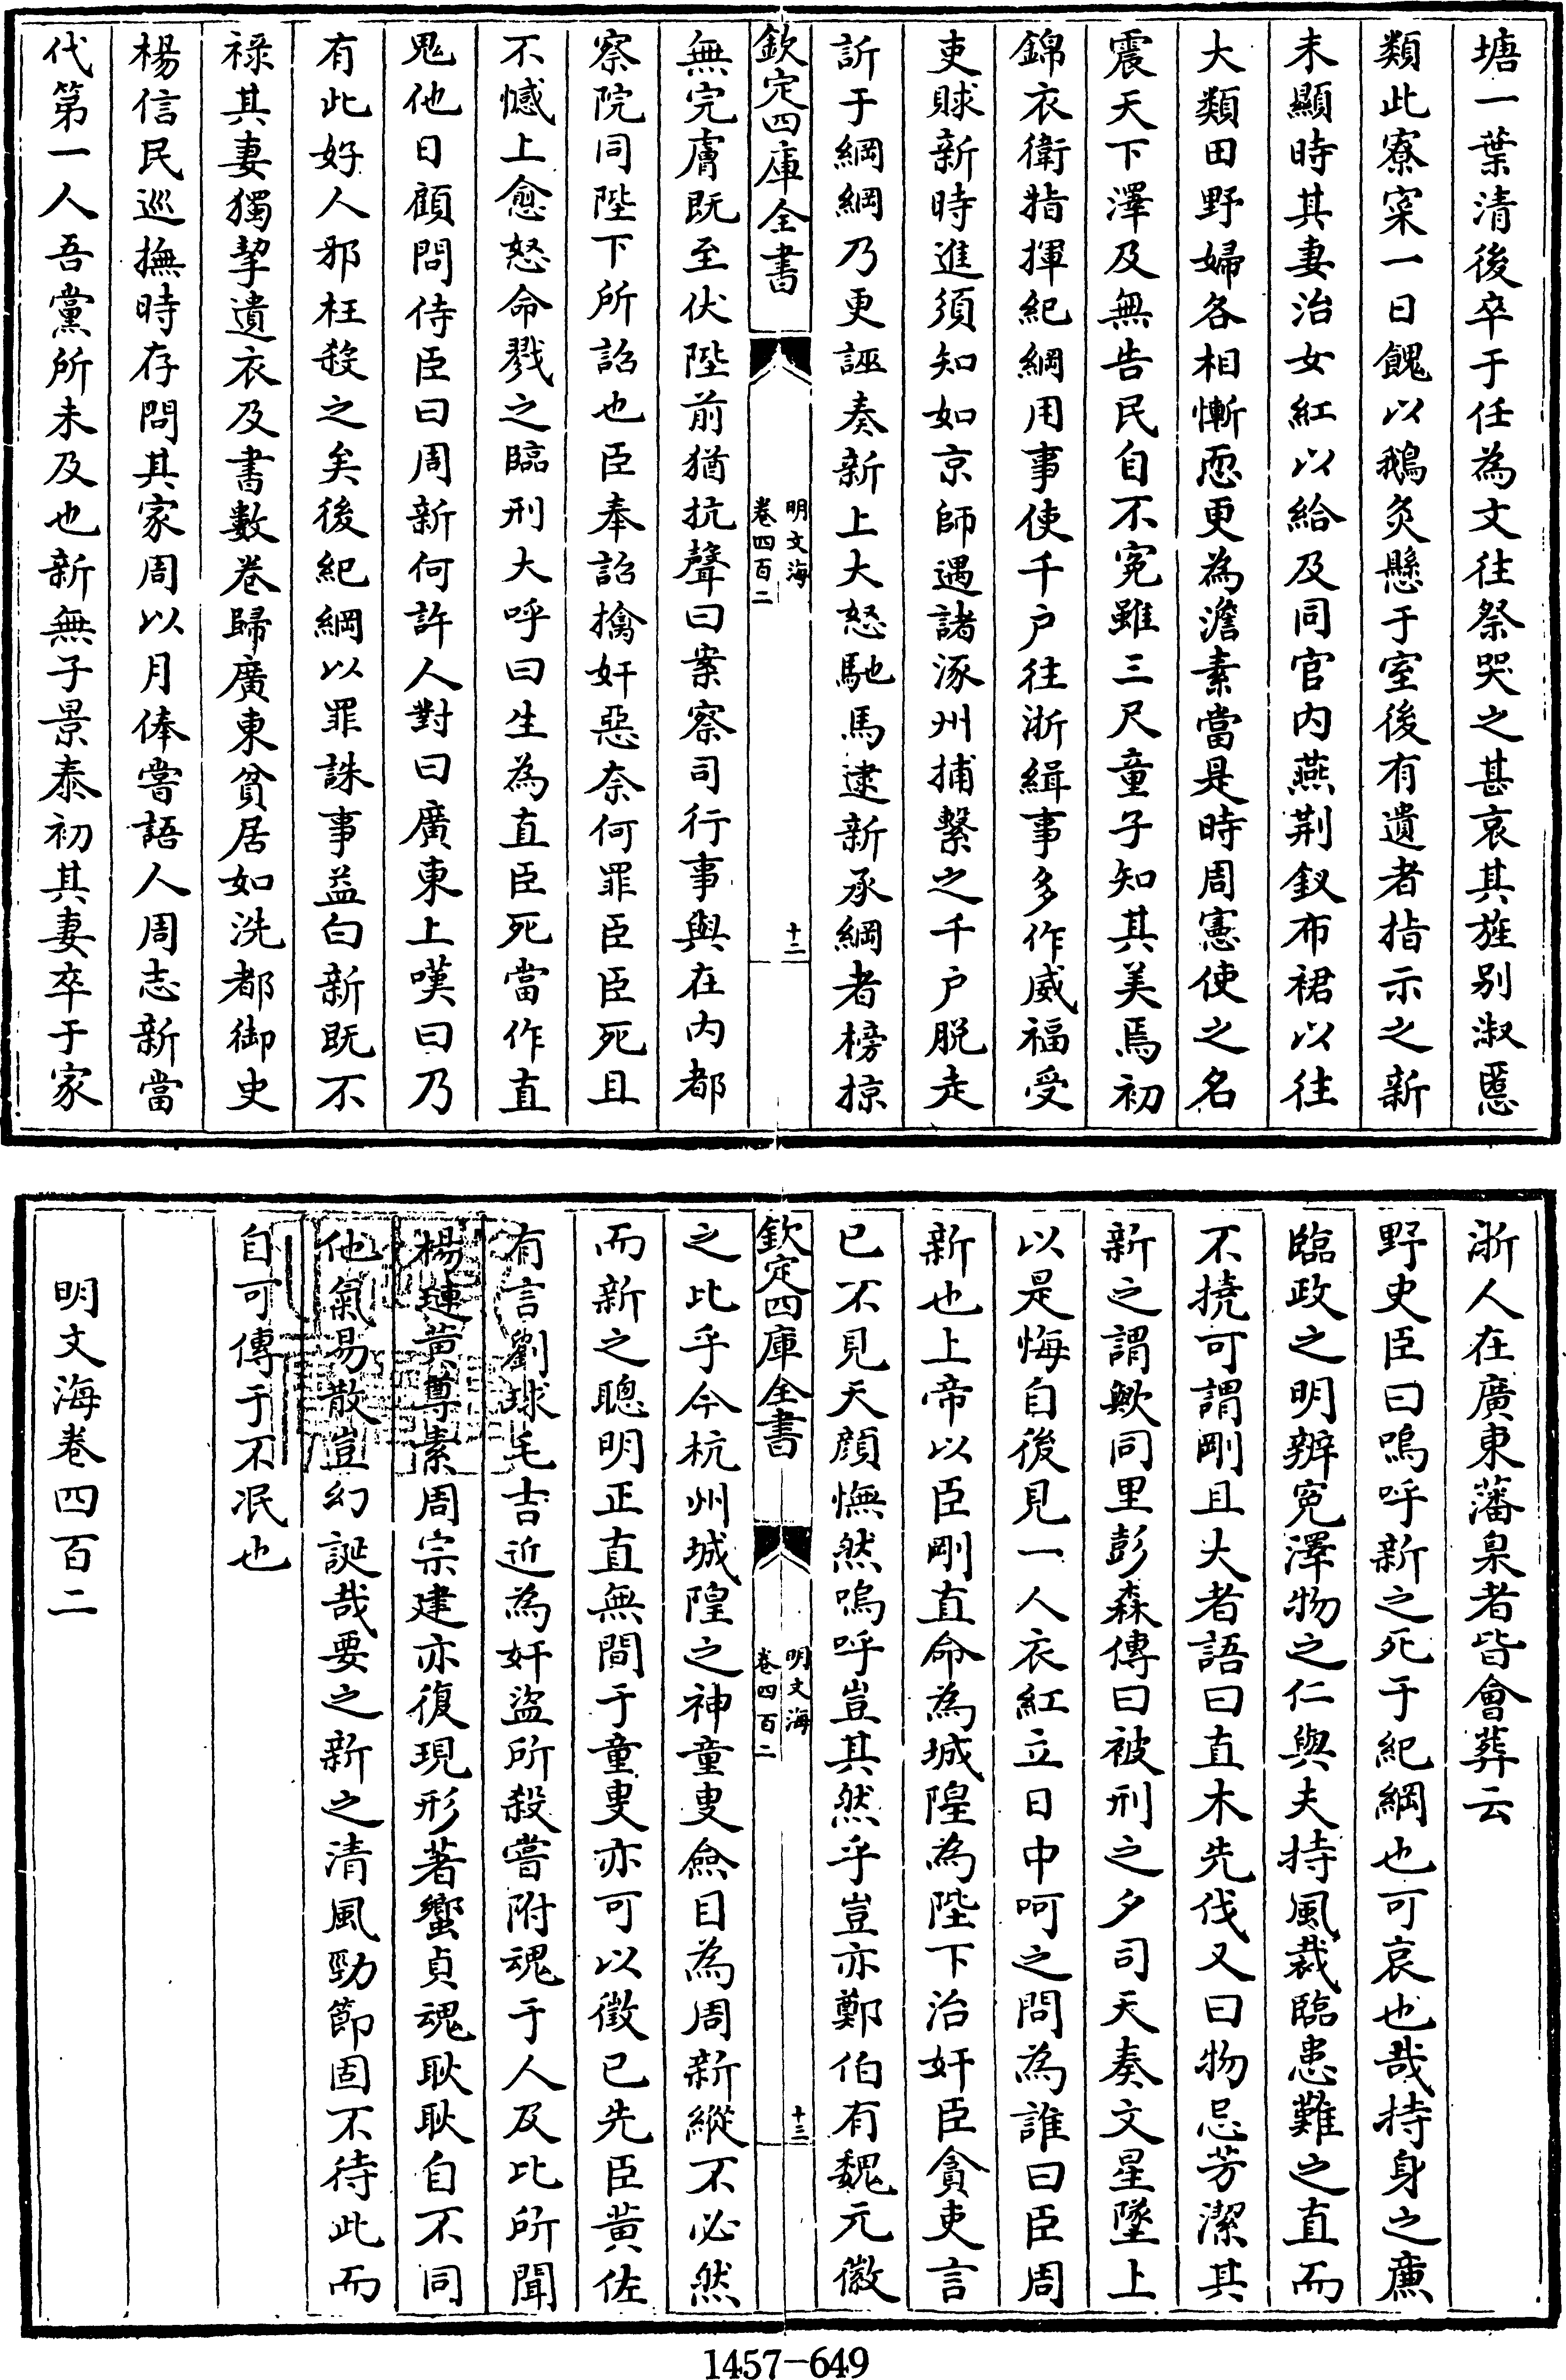 塘一葉清後卒于任為文往祭哭之甚哀其旌别淑慝
類此寮寀一日餽以鵝炙懸于室後有遺者指示之新
未顯時其妻治女紅以給及同官内燕荆釵布裙以往
大類田野婦各相慚恧更為澹素當是時周憲使之名
震天下澤及無告民自不寃雖三尺童子知其美焉初
錦衣衛指揮紀綱用事使千户往浙緝事多作威福受
吏賕新時進須知如京師遇諸涿州捕繫之千户脱走
訴于綱綱乃更誣奏新上大怒馳馬逮新承綱者榜掠
欽定四庫全書
明文海
卷四百二
十二
無完膚既至伏陛前猶抗聲曰案察司行事與在内都
察院同陛下所詔也臣奉詔擒奸惡奈何罪臣臣死且
不憾上愈怒命戮之臨刑大呼曰生為直臣死當作直
鬼他日顧問侍臣曰周新何許人對曰廣東上嘆曰乃
有此好人邪枉殺之矣後紀綱以罪誅事益白新既不
禄其妻獨挈遺衣及書數卷歸廣東貧居如洗都御史
楊信民巡撫時存問其家周以月俸嘗語人周志新當
代第一人吾黨所未及也新無子景泰初其妻卒于家
浙人在廣東藩臬者皆會葬云
野史臣曰嗚呼新之死于紀綱也可哀也哉持身之亷
臨政之明辨寃澤物之仁與夫持風裁臨患難之直而
不撓可謂剛且大者語曰直木先伐又曰物忌芳潔其
新之謂歟同里彭森傳曰被刑之夕司天奏文星墜上
以是悔自後見一人衣紅立日中呵之問為誰曰臣周
新也上帝以臣剛直命為城隍為陛下治奸臣貪吏言
已不見天顔憮然嗚呼豈其然乎豈亦鄭伯有魏元徽
欽定四庫全書
明文海
卷四百二
十三
之比乎今杭州城隍之神童叟僉目為周新縱不必然
而新之聰明正直無間于童叟亦可以徴已先臣黄佐
有言劉球毛吉近為奸盜所殺嘗附魂于人及比所聞
楊璉黄尊素周宗建亦復現形著蠁貞魂耿耿自不同
他氣易散豈幻誕哉要之新之清風勁節固不待此而
自可傳于不泯也
明文海卷四百二
1457-649